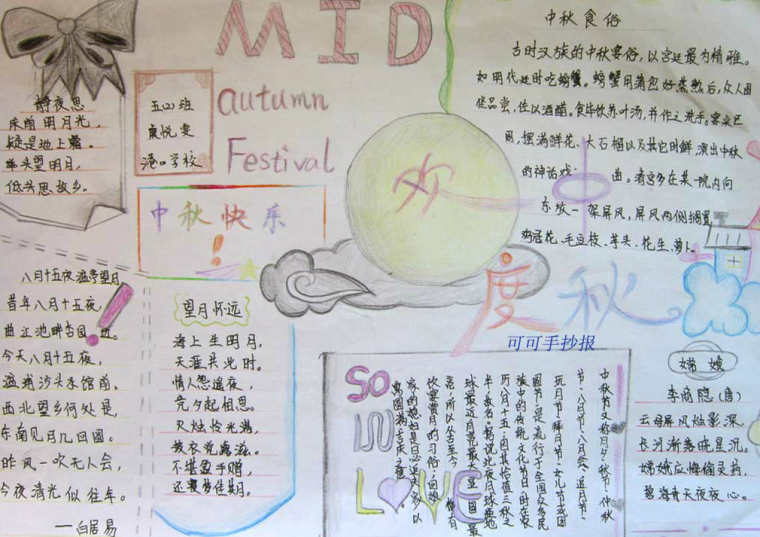 MID
autumn
Festival
静夜思
床前明月光,
疑是地上霜。
举头望明月,
低头思故乡。
五(2)班
港口学校
中秋快乐!
中秋食俗
古时汉族的中秋宴俗,以宫廷最为精雅。
如明代廷时吃螃蟹。螃蟹用蒲包好蒸熟后,众人围
促品尝,佐以酒醋。食毕饮苏叶汤,并作之洗手。宴桌已
周,摆满鲜花、大石榴以及其它时鲜,演出中秋
的神话戏 曲。清宫多在某一院内向
东放一架屏风,屏风两侧搁置
鸡冠花、毛豆枝、芋头、花生、萝卜。
欢度中秋
可可手抄报
八月十五夜湓亭望月
昔年八月十五夜,
曲江池畔杏园边。
今天八月十五夜,
湓浦沙头水馆前。
西北望乡何处是,
东南见月几回圆。
昨风一吹无人会,
今夜清光似往年。
——白居易
望月怀远
海上生明月,
天涯共此时。
情人怨遥夜,
竞夕起相思。
灭烛怜光满,
披衣觉露滋。
不堪盈手赠,
还寝梦佳期。
SO
IN
LOVE
中秋节又称月夕、秋节、仲秋
节、八月节、八月会、追月节、
玩月节、拜月节、女儿节或团
圆节,是流行于全国众多民
族中的传统文化节日,时在农
历八月十五;因其恰值三秋之
半,故名。
嫦娥
李商隐(唐)
云母屏风烛影深,
长河渐落晓星沉。
嫦娥应悔偷灵药,
碧海青天夜夜心。